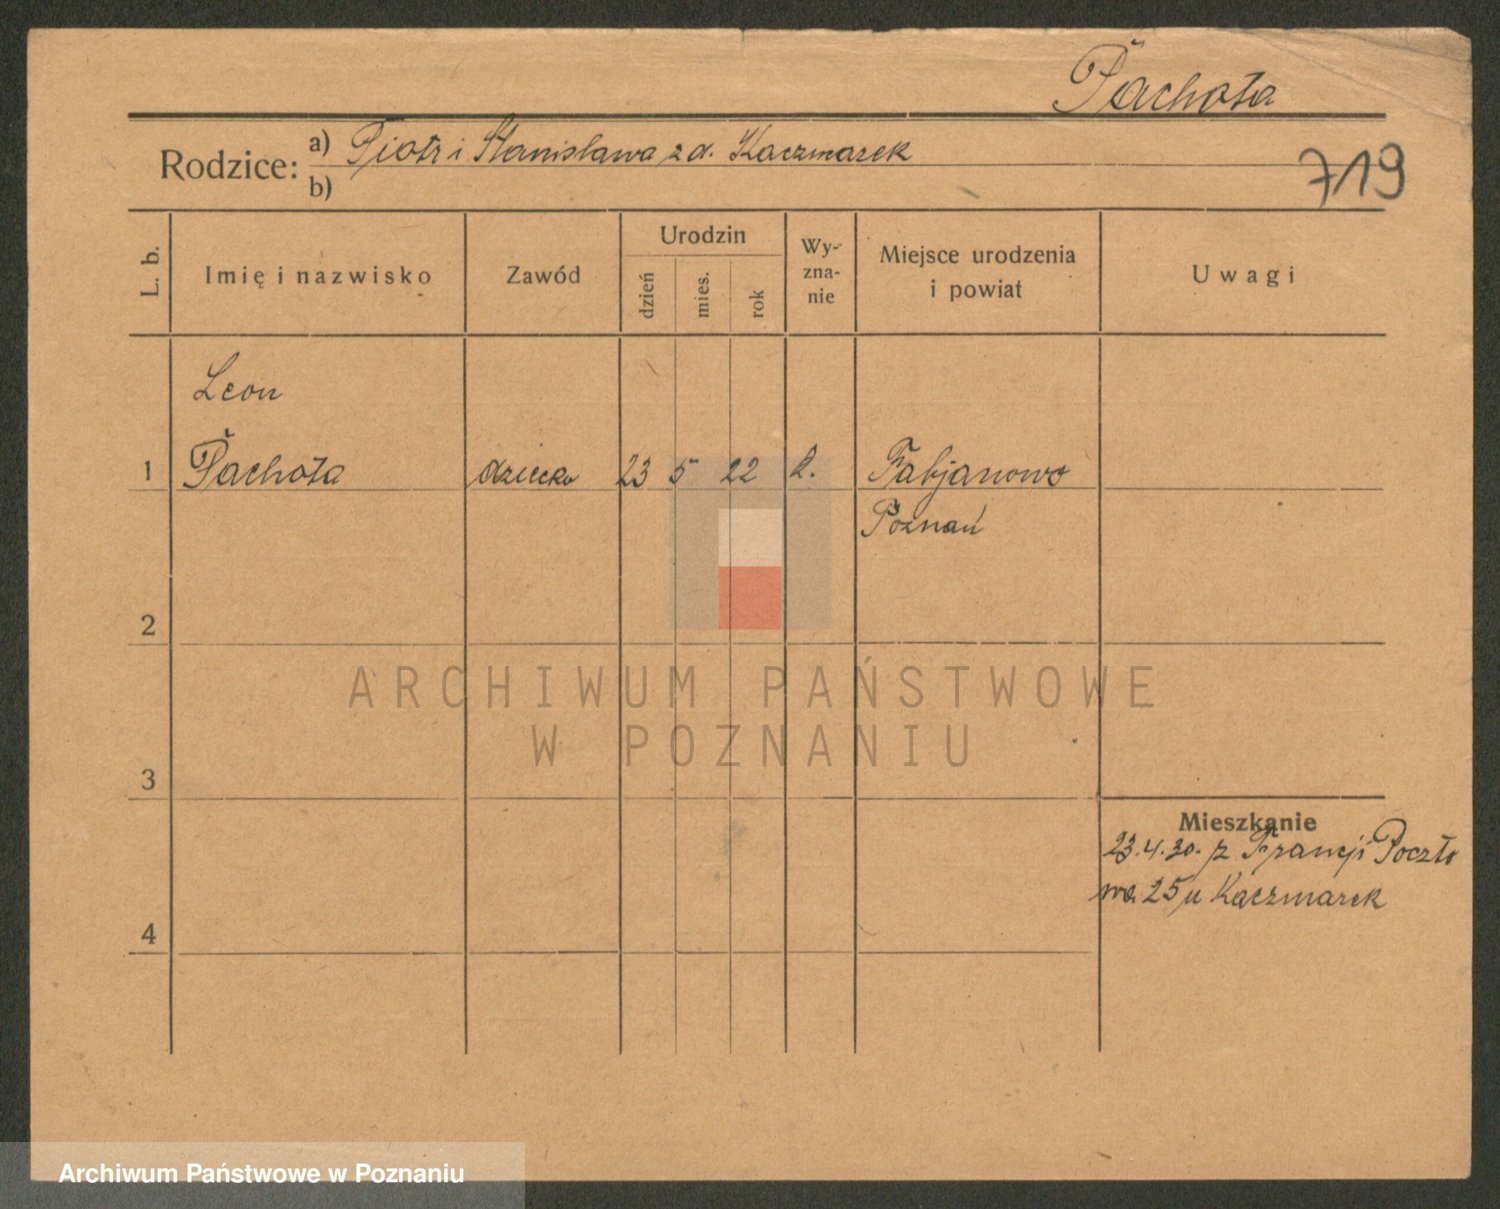 Pachoła
Rodzice: a) Piotr i Stanisława z d. Kaczmarek
b)
719
L. b.
Imię i nazwisko
Zawód
Urodzin
dzień
mies.
rok
Wy-
zna-
nie
Miejsce urodzenia
i powiat
Uwagi
Leon
1 Pachoła dziecko 23 5 22 k. Fabjanowo
Poznań
2
3
4
ARCHIWUM PAŃSTWOWE
W POZNANIU
Mieszkanie
23.4.30. z Francji Poczto
wa 25 u Kaczmarek
Archiwum Państwowe w Poznaniu